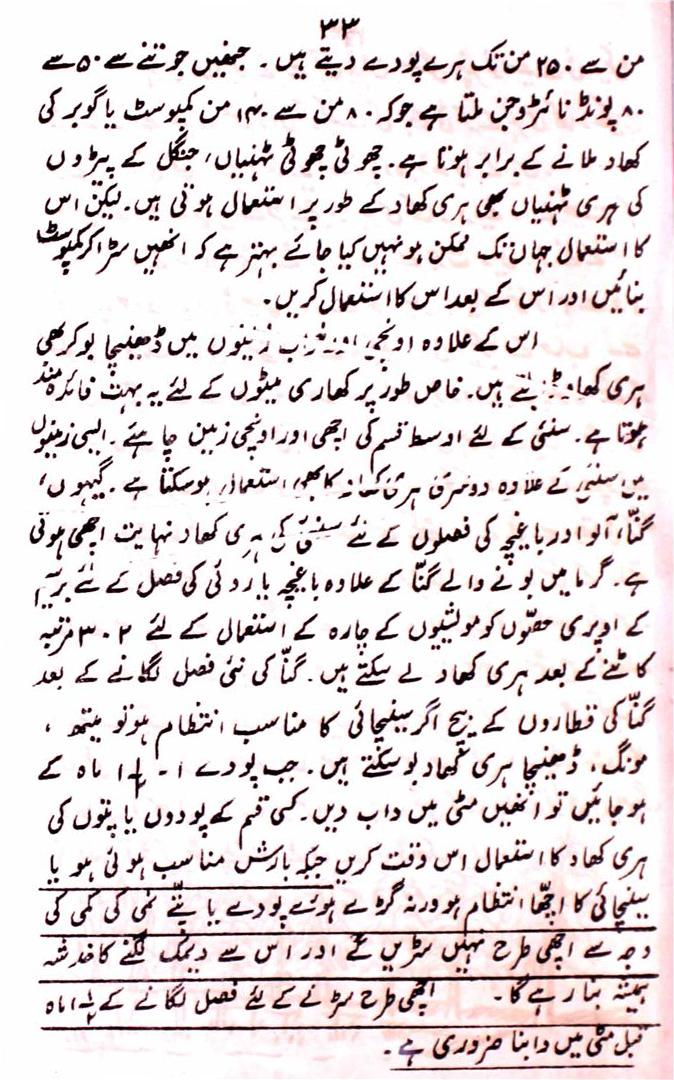 ۳۳
من سے ۲۵۰ من تک ہرے پودے دیتے ہیں۔ جنھیں جوتنے سے ۵۰ سے
۸۰ پونڈ نائٹروجن ملتا ہے جو کہ ۸۰ من سے ۱۲۰ من کمپوسٹ یا گوبر کی
کھاد ملانے کے برابر ہوتا ہے۔ چھوٹی چھوٹی ٹہنیاں، جنگل کے پیڑوں
کی ہری ٹہنیاں بھی ہری کھاد کے طور پر استعمال ہوتی ہیں۔ لیکن اس
کا استعمال جہاں تک ممکن ہو نہیں کیا جائے بہتر ہے کہ انھیں سڑا کر کمپوسٹ
بنائیں اور اس کے بعد اس کا استعمال کریں۔
اس کے علاوہ اونچی اور خراب زمینوں میں ڈھینچا بو کر بھی
ہری کھاد بناتے ہیں۔ خاص طور پر کھاری مٹیوں کے لئے یہ بہت فائدہ مند
ہوتا ہے۔ سنئی کے لئے اوسط قسم کی اچھی اور اونچی زمین چاہئے۔ ایسی زمینوں
میں سنئی کے علاوہ دوسری ہری کھاد کا بھی استعمال ہو سکتا ہے۔ گیہوں،
گنّا، آلو اور باغیچہ کی فصلوں کے لئے سنئی کی ہری کھاد نہایت اچھی ہوتی
ہے۔ گرما میں بونے والے گنّا کے علاوہ باغیچہ یا روئی کی فصل کے لئے برسیم
کے اوپری حصّوں کو مویشیوں کے چارہ کے استعمال کے لئے ۲۔۳ مرتبہ
کاٹنے کے بعد ہری کھاد لے سکتے ہیں۔ گنّا کی نئی فصل لگانے کے بعد
گنّا کی قطاروں کے بیچ اگر سینچائی کا مناسب انتظام ہو تو میتھ،
مونگ، ڈھینچا ہری کھاد بو سکتے ہیں۔ جب پودے ۱۔ ۱½ ماہ کے
ہو جائیں تو انھیں مٹی میں داب دیں۔ کسی قسم کے پودوں یا پتوں کی
ہری کھاد کا استعمال اس وقت کریں جبکہ بارش مناسب ہوئی ہو یا
سینچائی کا اچھا انتظام ہو ورنہ گڑے ہوئے پودے یا پتّے نمی کی کمی کی
وجہ سے اچھی طرح نہیں سڑیں گے اور اس سے دیمک لگنے کا خدشہ
ہمیشہ بنا رہے گا۔ اچھی طرح سڑنے کے لئے فصل لگانے کے ۱½ ماہ
قبل مٹی میں دابنا ضروری ہے۔